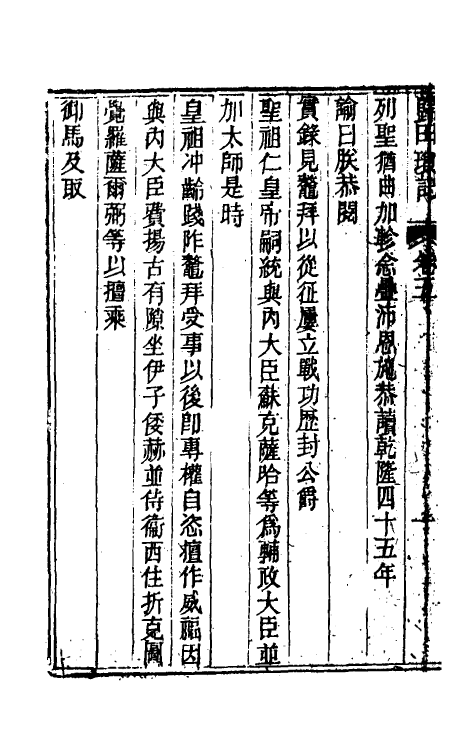 歸田瑣記 卷五
列聖猶曲加軫念疊沛恩施恭讀乾隆四十五年
諭曰朕恭閱
實錄見鼇拜以從征屢立戰功歷封公爵
聖祖仁皇帝嗣統與內大臣蘇克薩哈等為輔政大臣並
加太師是時
皇祖冲齡踐阼鼇拜受事以後卽專權自恣擅作威福因
與內大臣費揚古有隙坐伊子倭赫並侍衞西住折克圖
覺羅薩爾弼等以擅乘
御馬及取